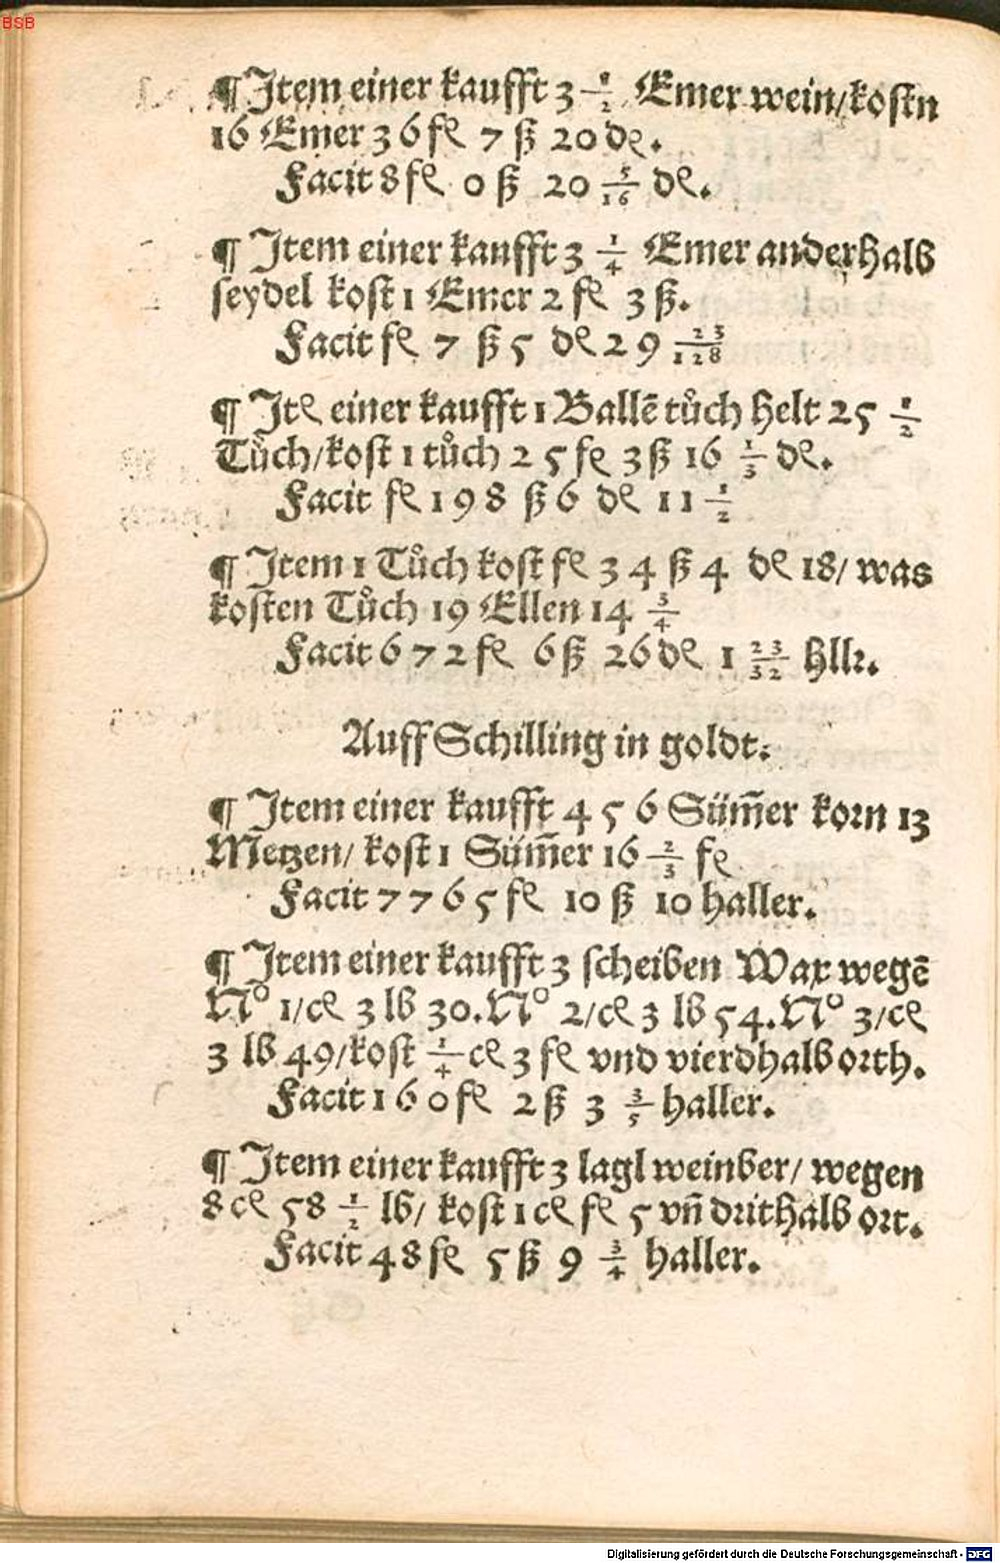 BSB
¶ Item einer kaufft 3 1/2 Emer wein/kostn
16 Emer 36 fl 7 ß 20 de.
Facit 8 fl 0 ß 20 5/16 de.
¶ Item einer kaufft 3 1/4 Emer anderhalb
seydel kost 1 Emer 2 fl 3 ß.
Facit fl 7 ß 5 de 29 23/128
¶ Ite einer kaufft 1 Ballē tůch helt 25 1/2
Tůch/kost 1 tůch 25 fl 3 ß 16 1/3 de.
Facit fl 198 ß 6 de 11 1/2
¶ Item 1 Tůch kost fl 34 ß 4 de 18/ was
kosten Tůch 19 Ellen 14 3/4
Facit 672 fl 6 ß 26 de 1 23/32 hllr.
Auff Schilling in goldt.
¶ Item einer kaufft 456 Süm̄er korn 13
Metzen/ kost 1 Süm̄er 16 2/3 fl
Facit 7765 fl 10 ß 10 haller.
¶ Item einer kaufft 3 scheiben Wax wegē
No 1/ce 3 lb 30. No 2/ce 3 lb 54. No 3/ce
3 lb 49/kost 1/4 ce 3 fl vnd vierdhalb orth.
Facit 160 fl 2 ß 3 3/5 haller.
¶ Item einer kaufft 3 lagl weinber/ wegen
8 ce 58 1/2 lb/ kost 1 ce fl 5 vn̄ drithalb ort.
Facit 48 fl 5 ß 9 3/4 haller.
Digitalisierung gefördert durch die Deutsche Forschungsgemeinschaft - DFG